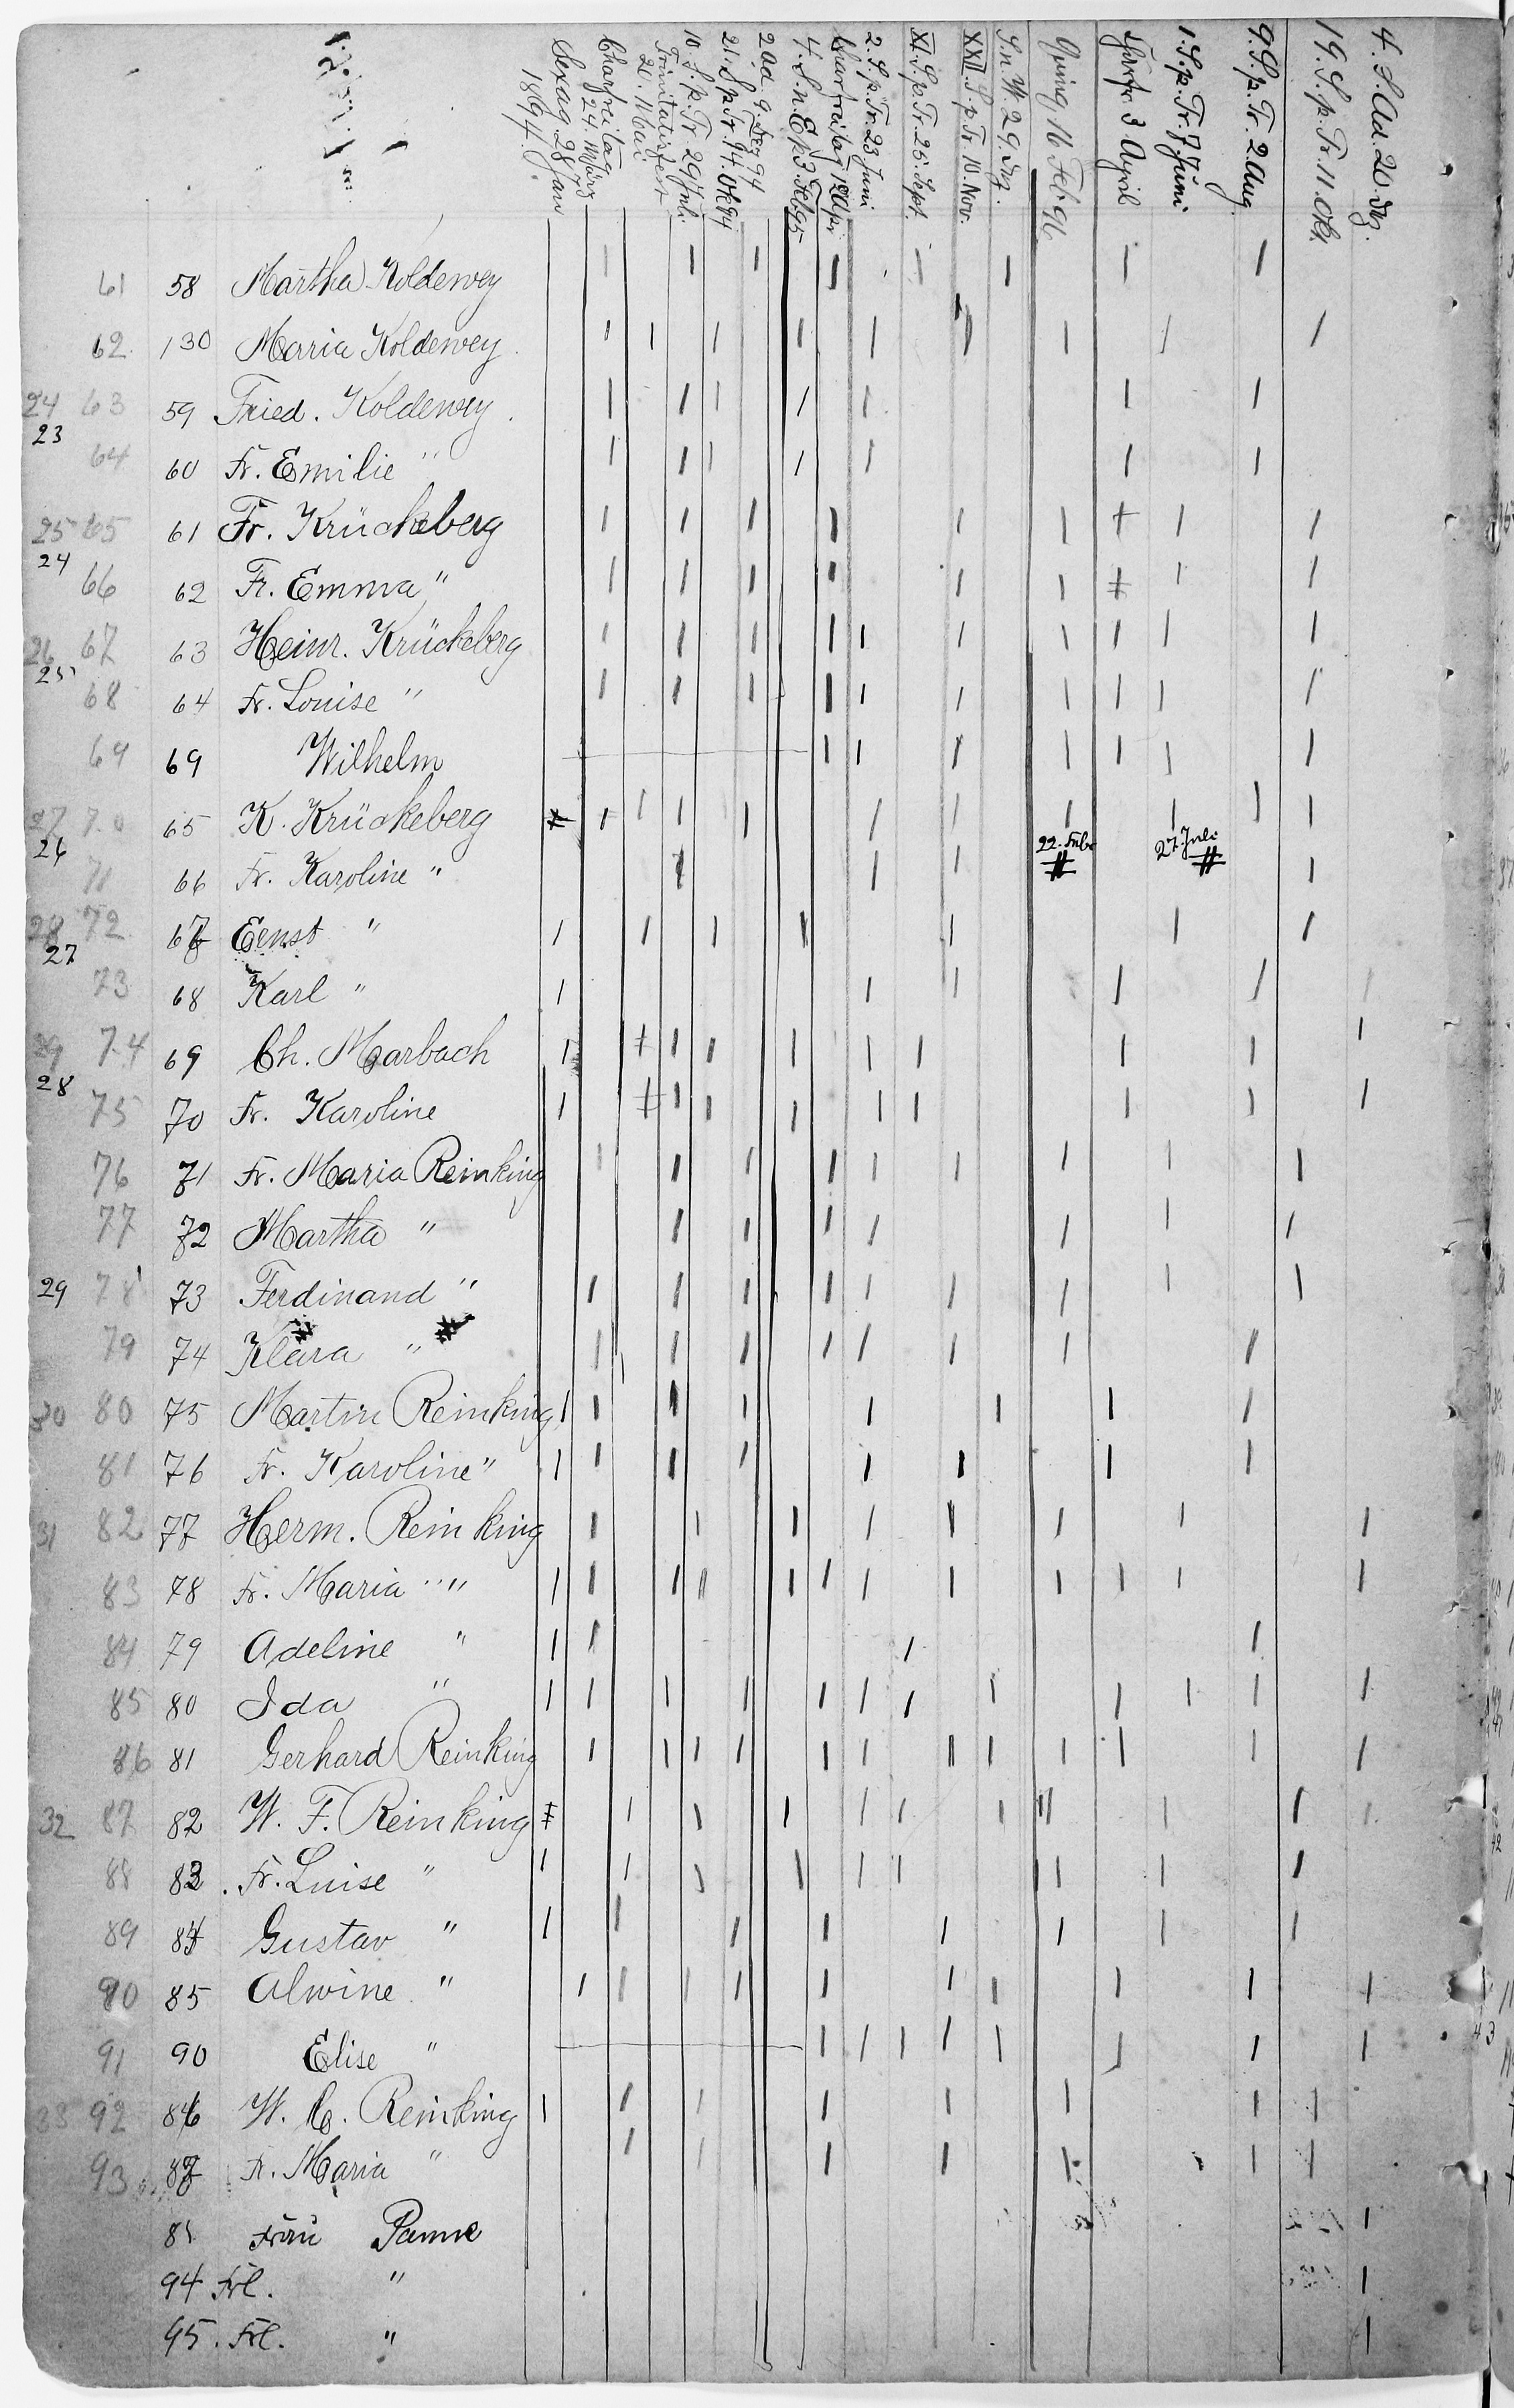 Sexag. 28 Jan 1894.
Charfreitag 24. März
Trinitatisfest 20. Mai
10. S. p. Tr. 29 Juli.
21. S p Tr. 14. Ok 94
2 Ad. 9. Dez 94
4. S. n. Ep 3. Feb 95
Charfreitag 12 Apr
2. S. p. Tr. 23 Juni
XI. S. p. Tr. 25. Sept.
XXII. S. p Tr 10. Nov.
S. n. W. 29. Dez.
Quinq. 16 Feb 96
Charfr. 3 April
1. S. p. Tr. 7 Juni
9. S. p. Tr. 2 Aug
19. S. p. Tr. 11. Okt.
4. S. Ad. 20. Dez.
61 58 Martha Koldewey
62. 130 Maria Koldewey
24 63 59 Fried. Koldewey
23
64 60 Fr. Emilie "
25 65 61 Fr. Krückeberg
24
66 62 Fr. Emma "
26 67 63 Heinr. Krückeberg
25
68 64 Fr. Louise "
69 69 Wilhelm
27 70 65 K. Krückeberg
26 22. Febr 27 Juli
71 66 Fr. Karoline "
28 72 67 Ernst "
27
73 68 Karl "
29 74 69 Ch. Marbach
28
75 70 Fr. Karoline
76 71 Fr. Maria Reinking
77 72 Martha "
29 78 73 Ferdinand "
79 74 Klara "
30 80 75 Martin Reinking
81 76 Fr. Karoline "
31 82 77 Herm. Reinking
83 78 Fr. Maria " "
84 79 Adeline "
85 80 Ida "
86 81 Gerhard Reinking
32 87 82 W. F. Reinking
88 83. Fr. Luise "
89 84 Gustav "
90 85 Alwine "
91 90 Elise "
33 92 86 W. C. Reinking
93 87 Fr. Maria "
Frau Panne
94 Frl. "
95. Frl. "